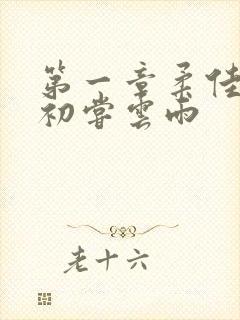 第一章柔佳
初尝雲雨
老十六